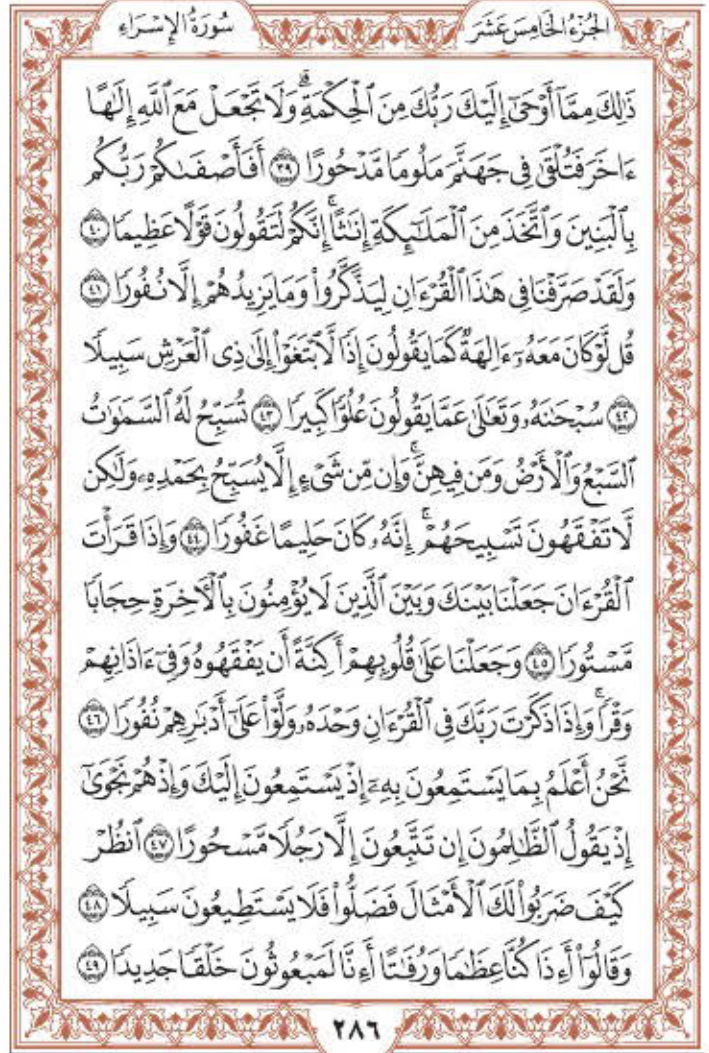 الجُزْءُ الخَامِسَ عَشَرَ سُورَةُ الإِسْرَاءِ
ذَٰلِكَ مِمَّآ أَوْحَىٰٓ إِلَيْكَ رَبُّكَ مِنَ ٱلْحِكْمَةِۗ وَلَا تَجْعَلْ مَعَ ٱللَّهِ إِلَٰهًا
ءَاخَرَ فَتُلْقَىٰ فِي جَهَنَّمَ مَلُومًا مَّدْحُورًا ٣٩ أَفَأَصْفَىٰكُمْ رَبُّكُم
بِٱلْبَنِينَ وَٱتَّخَذَ مِنَ ٱلْمَلَٰٓئِكَةِ إِنَٰثًاۚ إِنَّكُمْ لَتَقُولُونَ قَوْلًا عَظِيمًا ٤٠
وَلَقَدْ صَرَّفْنَا فِي هَٰذَا ٱلْقُرْءَانِ لِيَذَّكَّرُوا۟ وَمَا يَزِيدُهُمْ إِلَّا نُفُورًا ٤١
قُل لَّوْ كَانَ مَعَهُۥٓ ءَالِهَةٌ كَمَا يَقُولُونَ إِذًا لَّٱبْتَغَوْا۟ إِلَىٰ ذِي ٱلْعَرْشِ سَبِيلًا
٤٢ سُبْحَٰنَهُۥ وَتَعَٰلَىٰ عَمَّا يَقُولُونَ عُلُوًّا كَبِيرًا ٤٣ تُسَبِّحُ لَهُ ٱلسَّمَٰوَٰتُ
ٱلسَّبْعُ وَٱلْأَرْضُ وَمَن فِيهِنَّۚ وَإِن مِّن شَيْءٍ إِلَّا يُسَبِّحُ بِحَمْدِهِۦ وَلَٰكِن
لَّا تَفْقَهُونَ تَسْبِيحَهُمْۚ إِنَّهُۥ كَانَ حَلِيمًا غَفُورًا ٤٤ وَإِذَا قَرَأْتَ
ٱلْقُرْءَانَ جَعَلْنَا بَيْنَكَ وَبَيْنَ ٱلَّذِينَ لَا يُؤْمِنُونَ بِٱلْءَاخِرَةِ حِجَابًا
مَّسْتُورًا ٤٥ وَجَعَلْنَا عَلَىٰ قُلُوبِهِمْ أَكِنَّةً أَن يَفْقَهُوهُ وَفِيٓ ءَاذَانِهِمْ
وَقْرًاۚ وَإِذَا ذَكَرْتَ رَبَّكَ فِي ٱلْقُرْءَانِ وَحْدَهُۥ وَلَّوْا۟ عَلَىٰٓ أَدْبَٰرِهِمْ نُفُورًا ٤٦
نَّحْنُ أَعْلَمُ بِمَا يَسْتَمِعُونَ بِهِۦٓ إِذْ يَسْتَمِعُونَ إِلَيْكَ وَإِذْ هُمْ نَجْوَىٰٓ
إِذْ يَقُولُ ٱلظَّٰلِمُونَ إِن تَتَّبِعُونَ إِلَّا رَجُلًا مَّسْحُورًا ٤٧ ٱنظُرْ
كَيْفَ ضَرَبُوا۟ لَكَ ٱلْأَمْثَالَ فَضَلُّوا۟ فَلَا يَسْتَطِيعُونَ سَبِيلًا ٤٨
وَقَالُوٓا۟ أَءِذَا كُنَّا عِظَٰمًا وَرُفَٰتًا أَءِنَّا لَمَبْعُوثُونَ خَلْقًا جَدِيدًا ٤٩
٢٨٦